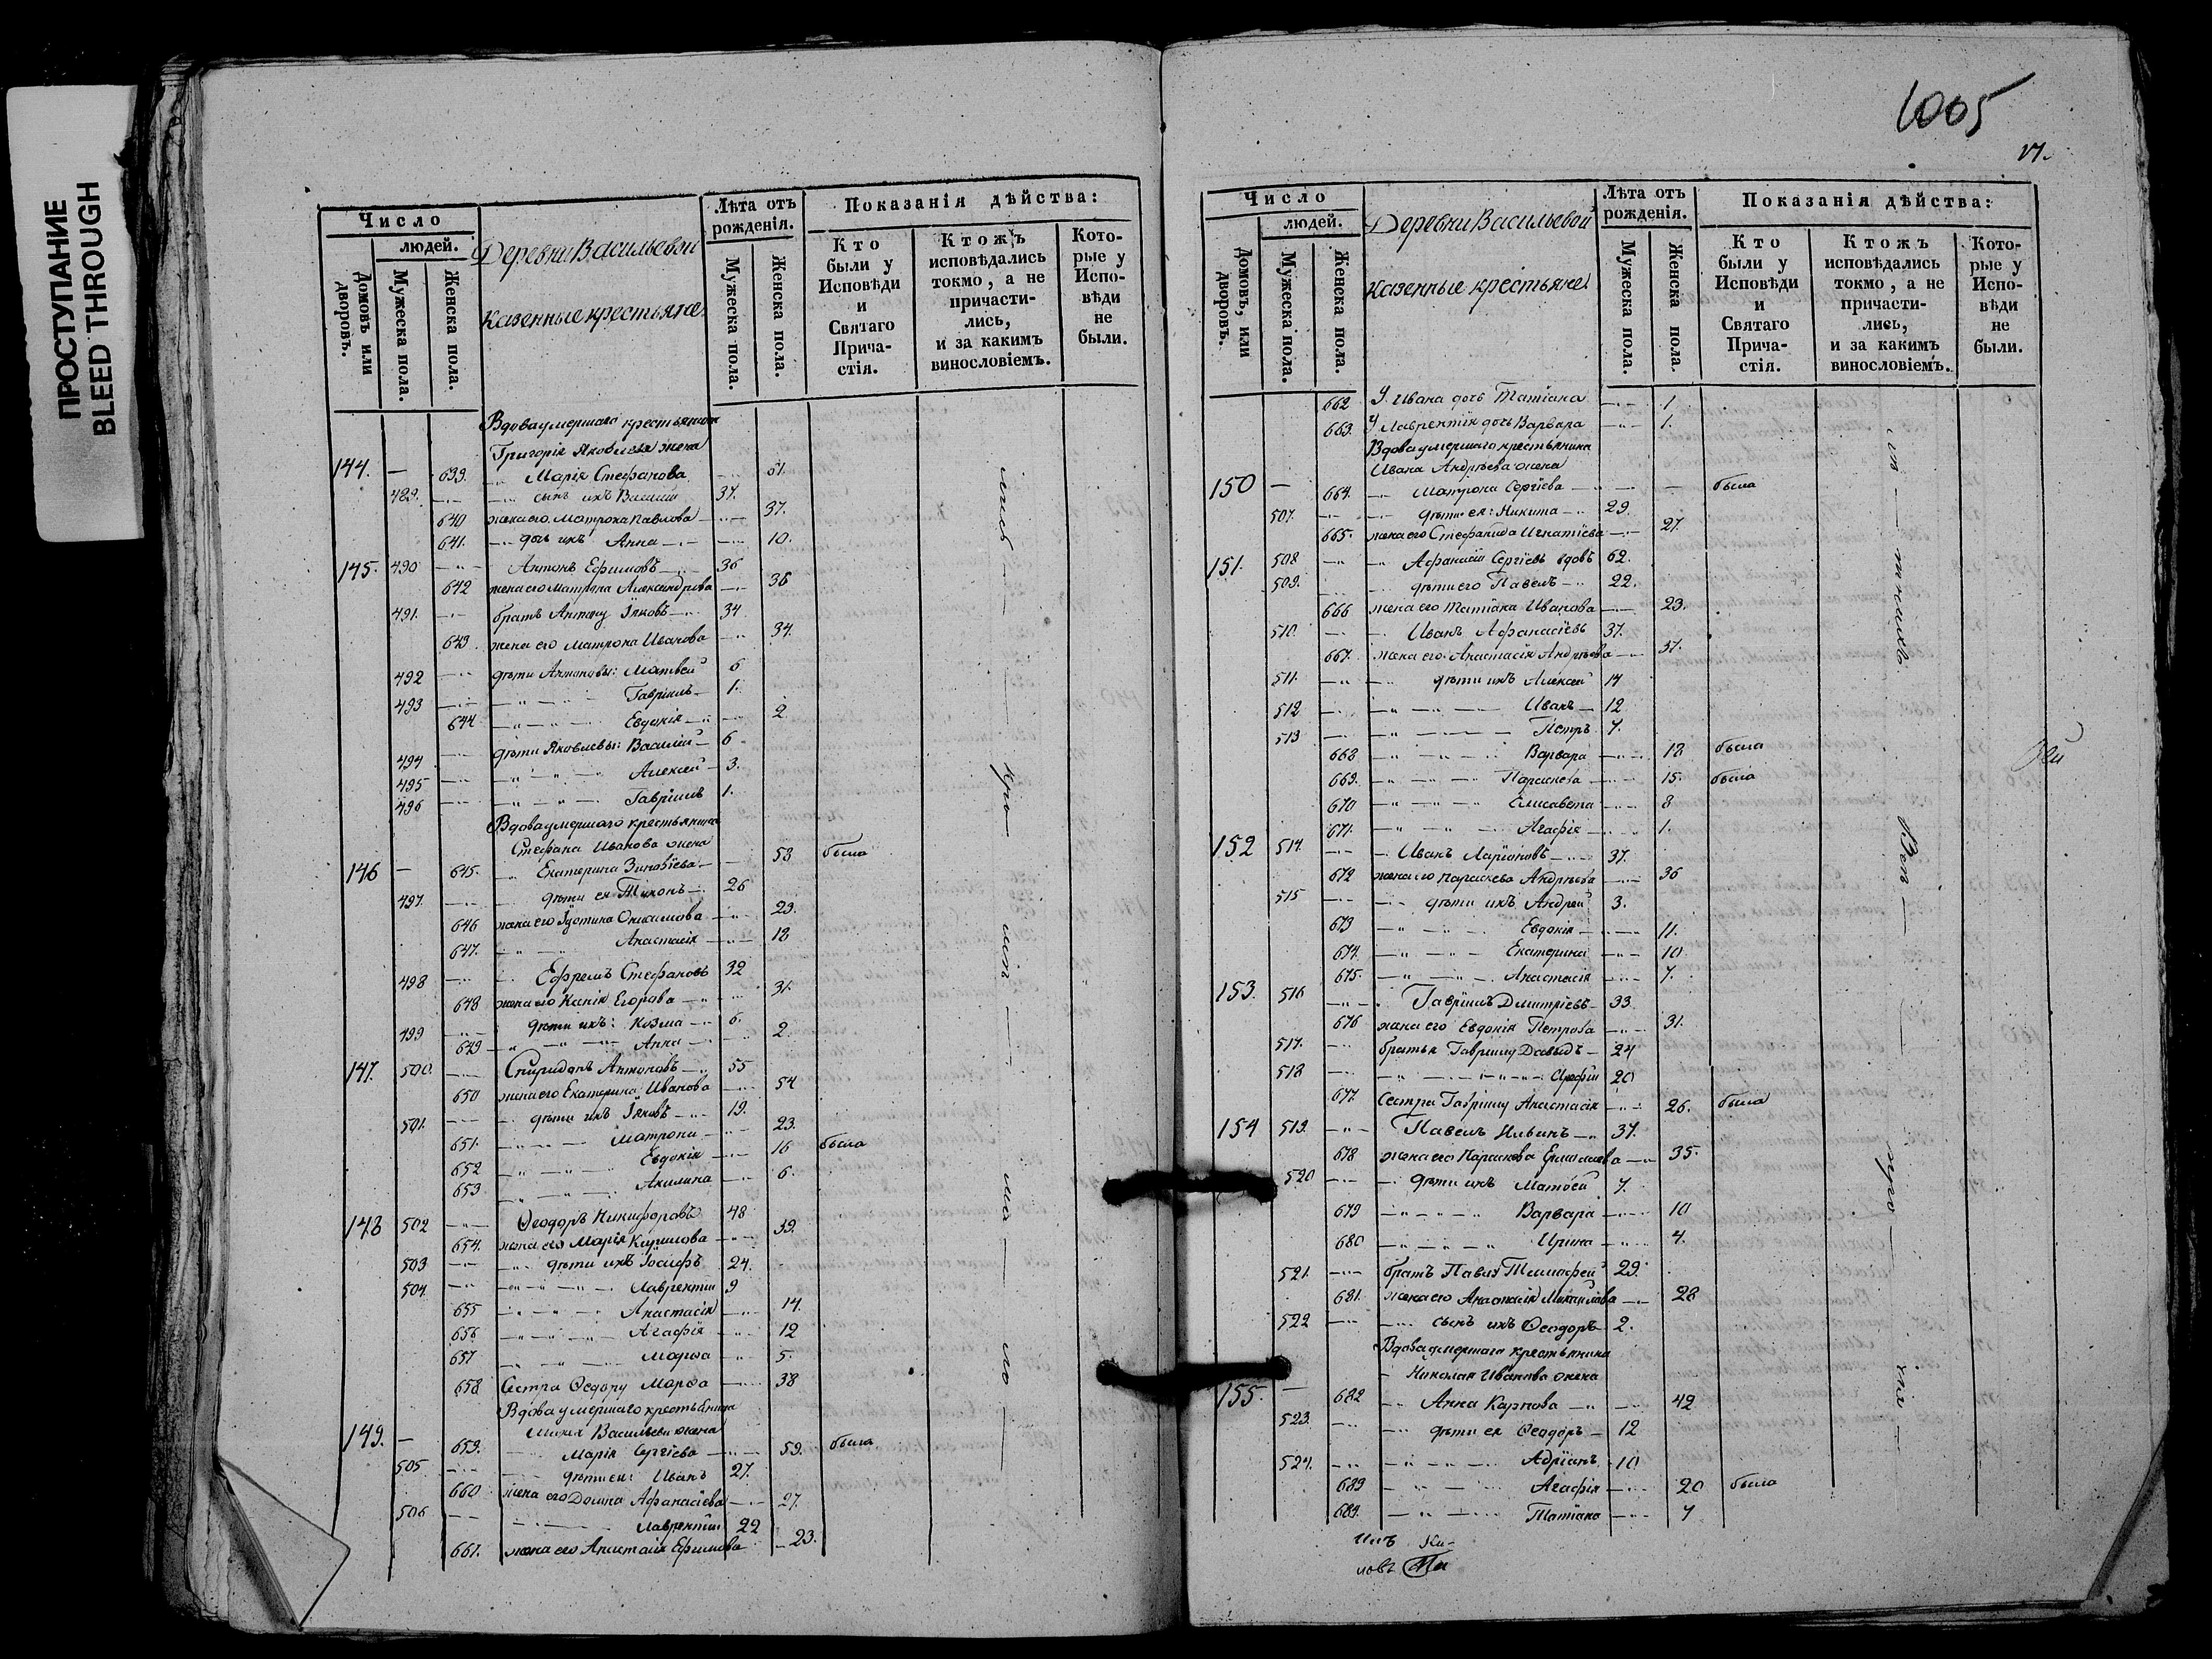 ПРОСТУПАНИЕ
BLEED THROUGH
Число
людей.
Домовъ или дворовъ.
Мужеска пола.
Женска пола.
Деревни Васильевой
Казенные крестьяне
Лѣта отъ рожденія.
Мужеска пола.
Женска пола.
Показанія дѣйства:
Кто были у Исповѣди и Святаго Прича-стія.
Ктожъ исповѣдались токмо, а не причасти-лись, и за какимъ винословіемъ.
Кото-рые у Испо-вѣди не были.
Вдова умершаго крестьянина
Григорія Яковлева жена
144. — 639. Марія Стефанова 61.
489. сынъ ихъ Василій 37.
640 жена его Матрона Павлова 37.
641. дочь ихъ Анна 10.
145. 490 Антонъ Ефимовъ 36
642 жена его Матрона Александрова 36
491. братъ Антону Іаковъ 34.
643 жена его Матрона Иванова 34.
492 дѣти Антоновы: Матвей 6
493 Гавріилъ 1.
644 Евдокія 2
494 дѣти Яковлевы: Василій 6
495 Алексей 3.
496 Гавріилъ 1.
Вдова умершаго крестьянина
Стефана Иванова жена
146 — 645. Екатерина Зиновіева 58 была
497. дѣти ея Тихонъ 26
646 жена его Іустина Онисимова 23.
647. Анастасія 18
498 Ефремъ Стефановъ 32
648 жена его Ксенія Егорова 31.
499 дѣти ихъ: Козма 6.
649 Анна 2
147. 500. Спиридонъ Антоновъ 55
650 жена его Екатерина Иванова 54
501. дѣти ихъ Іаковъ 19.
651. Матрона 23.
652 Евдокія 16 была
653 Акилина 6.
148 502 Ѳеодоръ Никифоровъ 48
654. жена его Марія Кирилова 39.
503 дѣти ихъ Іосифъ 24.
504 Лаврентій 9
655 Анастасія 14.
656 Агафія 12
657 Марфа 5.
658 Сестра Ѳеодору Марѳа 38
Вдова умершаго крестьянина
Васильева жена
149. — 659. Марія Сергіева 59. была
505 дѣти ея: Иванъ 27.
660 жена его Домна Афанасіева 27.
506 Лаврентій 22
661. жена его Анастасія Ефимова 23.
1005
17.
Число
людей.
Домовъ, или дворовъ.
Мужеска пола.
Женска пола.
Деревни Васильевой
Казенные крестьяне
Лѣта отъ рожденія.
Мужеска пола.
Женска пола.
Показанія дѣйства:
Кто были у Исповѣди и Святаго Прича-стія.
Ктожъ исповѣдались токмо, а не причасти-лись, и за какимъ винословіемъ.
Кото-рые у Испо-вѣди не были.
662 У Ивана дочь Татіана 1
663. У Лаврентія дочь Варвара 1.
Вдова умершаго крестьянина
Ивана Андрѣева жена
150 — 664. Матрона Сергіева — была
507. дѣти ея: Никита 29.
665. жена его Стефанида Игнатіева 27.
151. 508 Афанасій Сергіевъ вдовъ 62.
509. дѣти его Павелъ 22.
666 жена его Татіана Иванова 23.
510. Иванъ Афанасіевъ 37.
667. жена его Анастасія Андрѣева 37.
511. дѣти ихъ Алексей 14
512 Иванъ 12
513 Петръ 7.
668 Варвара 18 была
669. Параскева 15. была
670 Елисавета 8
671. Агафія 1.
152 514. Иванъ Ларіоновъ 37.
672 жена его Параскева Андрѣева 36
515 дѣти ихъ Андрей 3.
673 Евдокія 11.
674. Екатерина 10
675. Анастасія 7.
153. 516 Гавріилъ Дмитріевъ 33.
676 жена его Евдокія Петрова 31.
517. братья Гавріилу Давыдъ 24
518 20
677. Сестра Гавріилу Анастасія 26. была
154 519. Павелъ Ильинъ 37.
678 жена его Параскева 35.
520 дѣти ихъ Матѳей 7.
679 Варвара 10
680 Ирина 4.
521. братъ Павлу Тимофей 29.
681. жена его Анастасія Михайлова 28
522 сынъ ихъ Ѳеодоръ 2.
Вдова умершаго крестьянина
Николая Иванова жена
155. — 682 Анна Карпова 42
523. дѣти ея Ѳеодоръ 12
524. Адріанъ 10
683 Агафія 20 была
683. Татіана 7